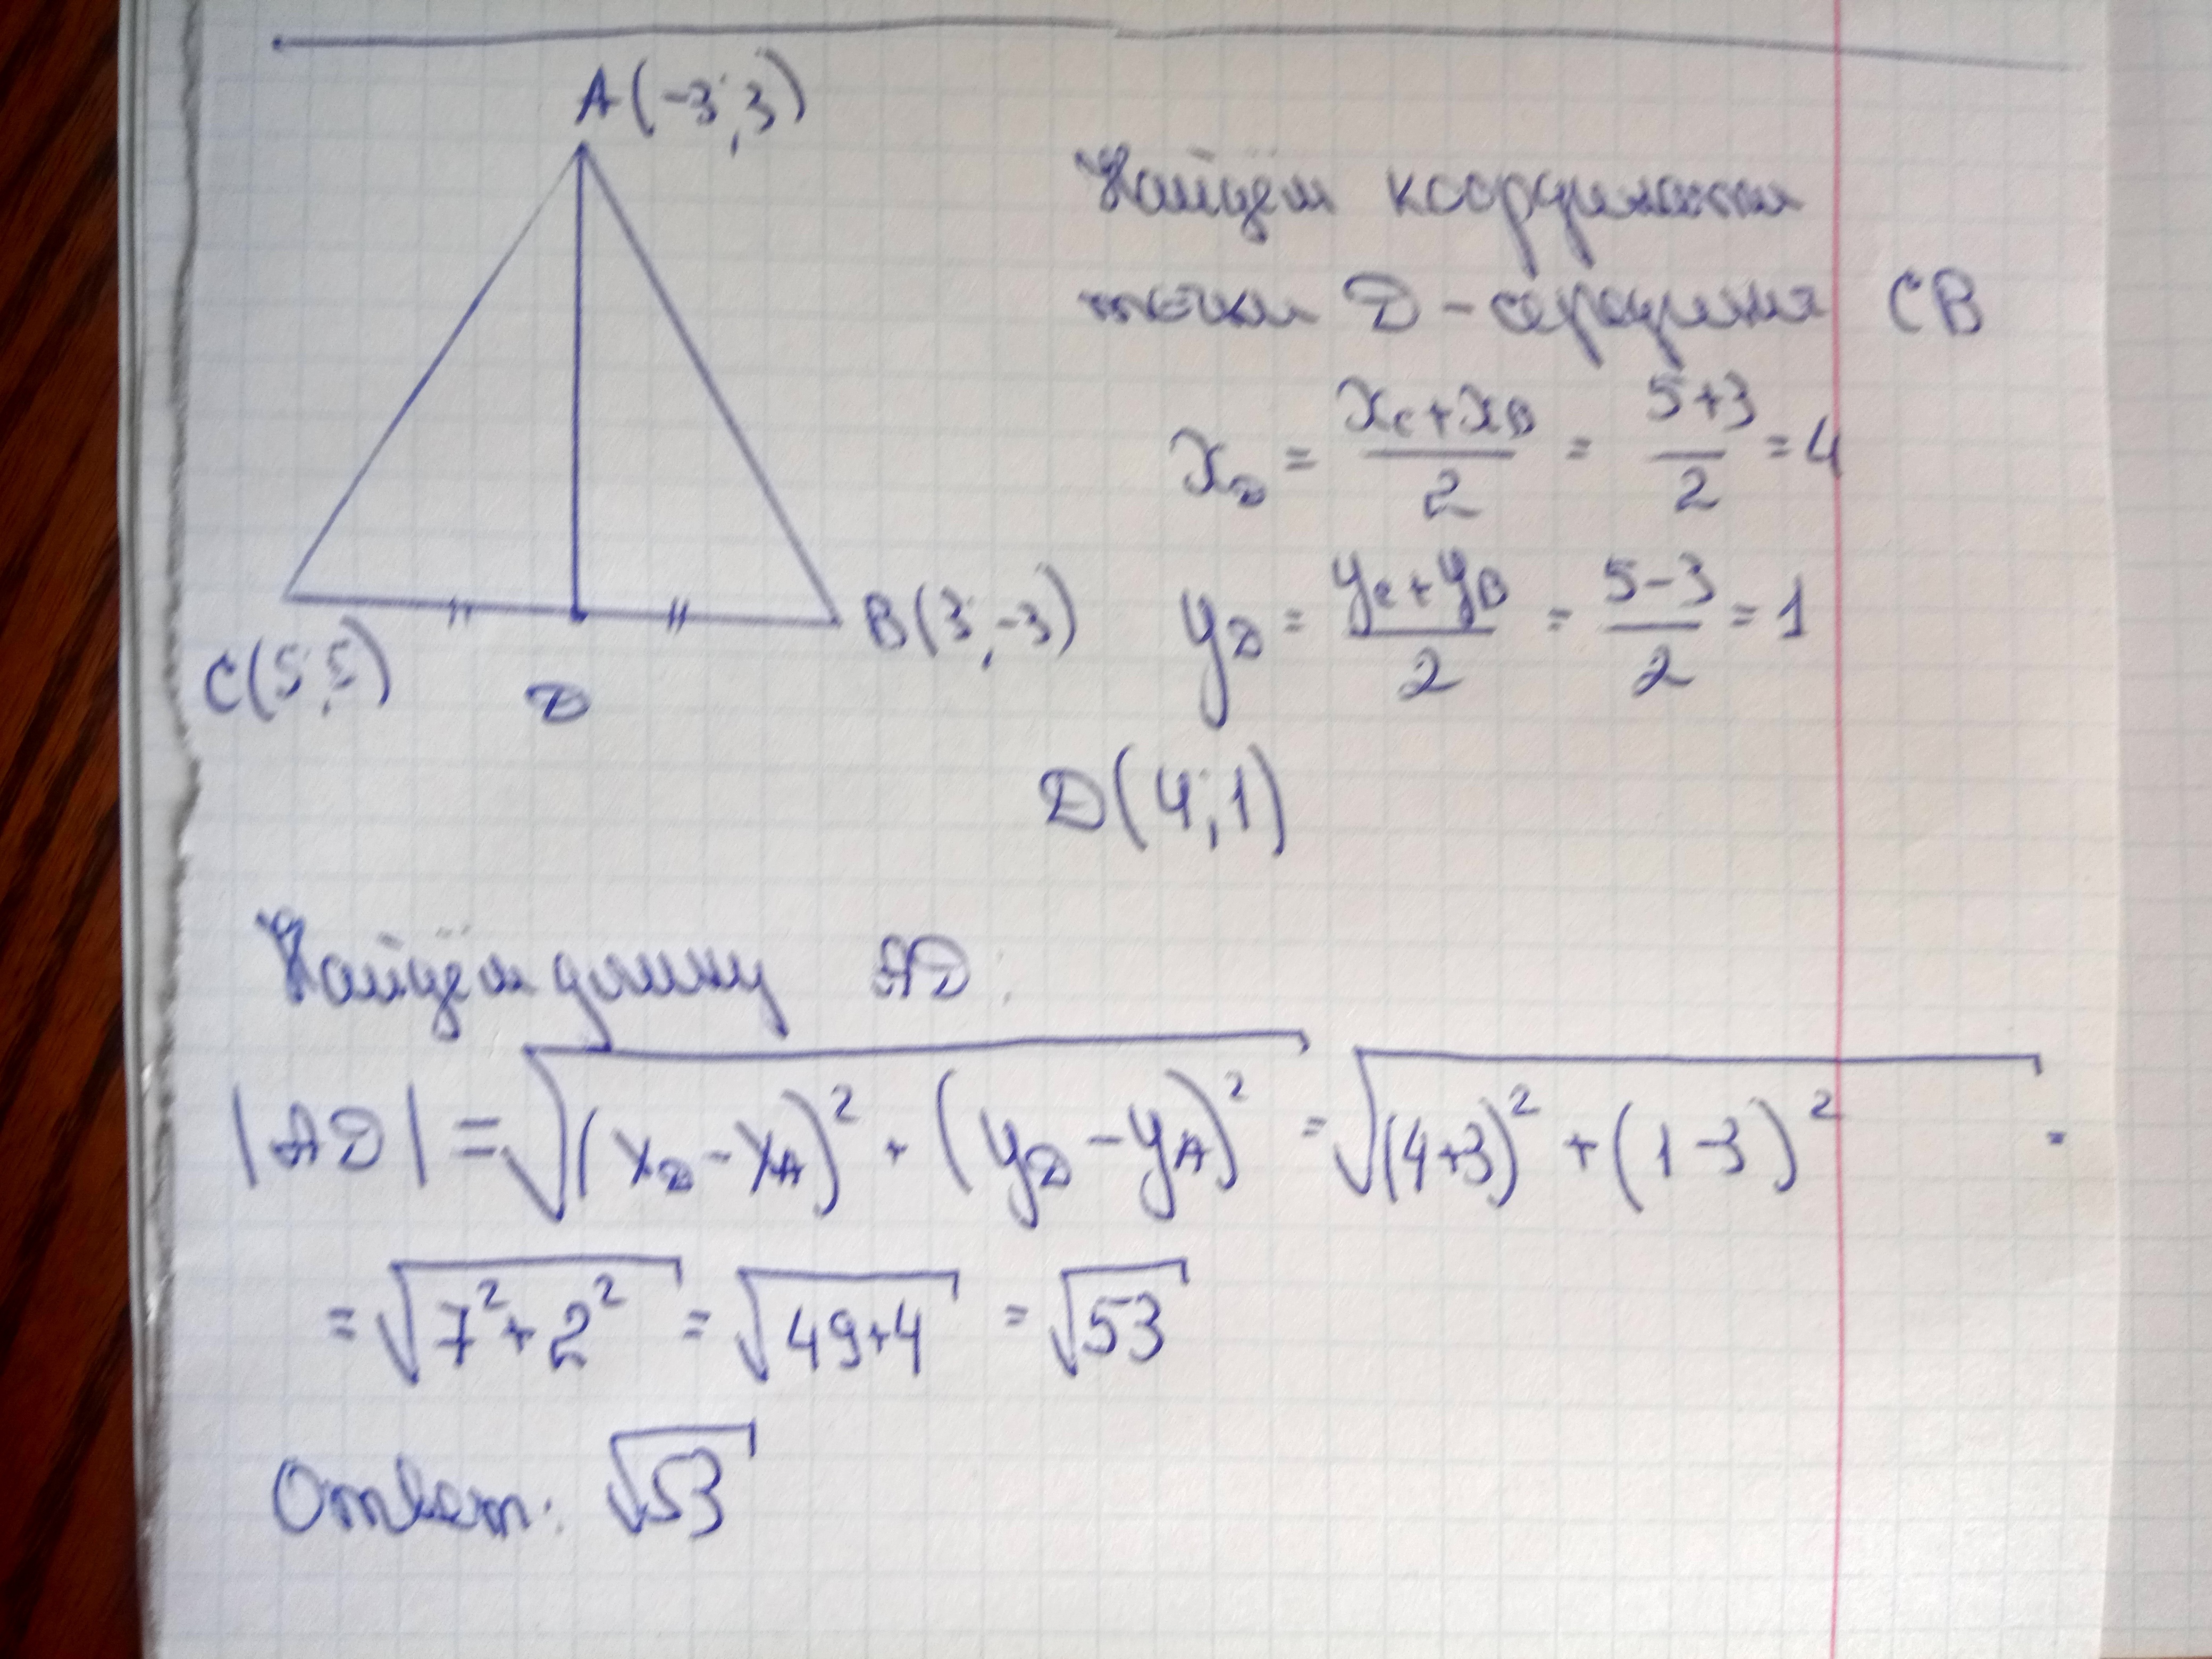 A(-3;3)
Найдём координаты
точки D - середина CB
x_D = (x_C + x_B)/2 = (5+3)/2 = 4
C(5;5)
D
B(3;-3)
y_D = (y_C + y_B)/2 = (5-3)/2 = 1
D(4;1)
Найдём длину AD:
|AD| = √((x_D - x_A)² + (y_D - y_A)²) = √((4+3)² + (1-3)²) =
= √(7² + 2²) = √(49+4) = √53
Ответ: √53